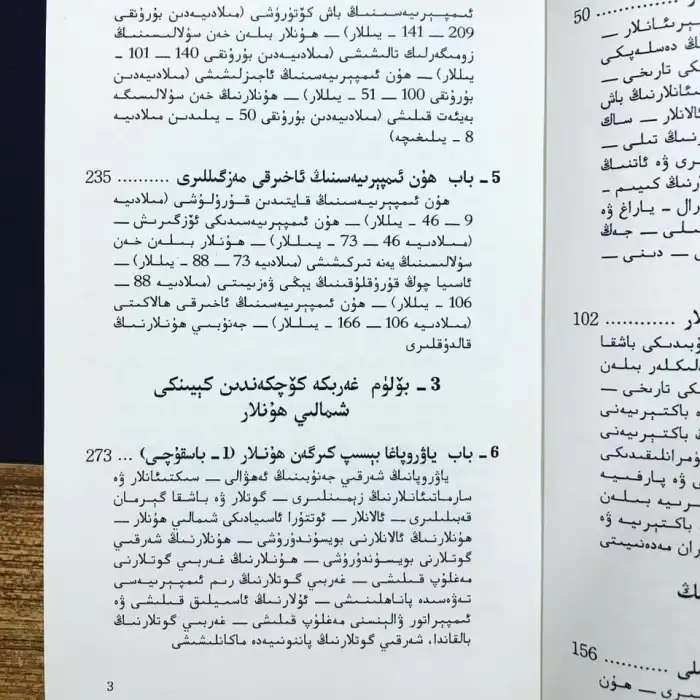 ئىمپېرىيەسىنىڭ باش كۆتۈرۈشى (مىلادىيەدىن بۇرۇنقى
209 — 141 - يىللار) — ھۇنلار بىلەن خەن سۇلالىسىنىڭ
زومىگەرلىك تالىشىشى (مىلادىيەدىن بۇرۇنقى 140 — 101 -
يىللار) — ھۇن ئىمپېرىيەسىنىڭ ئاجىزلىشىشى (مىلادىيەدىن
بۇرۇنقى 100 — 51 - يىللار) — ھۇنلارنىڭ خەن سۇلالىسىگە
بەيئەت قىلىشى (مىلادىيەدىن بۇرۇنقى 50 - يىلىدىن مىلادىيە
8 - يىلىغىچە)
5 - باب ھۇن ئىمپېرىيەسىنىڭ ئاخىرقى مەزگىللىرى .......... 235
ھۇن ئىمپېرىيەسىنىڭ قايتىدىن قۇرۇلۇشى (مىلادىيە
9 — 46 - يىللار) — ھۇن ئىمپېرىيەسىدىكى ئۆزگىرىش —
(مىلادىيە 46 — 73 - يىللار) — ھۇنلار بىلەن خەن
سۇلالىسىنىڭ يەنە تىركىشىشى (مىلادىيە 73 — 88 - يىللار) —
ئاسىيا چوڭ قۇرۇقلۇقىنىڭ يېڭى ۋەزىيىتى (مىلادىيە 88 —
106 - يىللار) — ھۇن ئىمپېرىيەسىنىڭ ئاخىرقى ھالاكىتى
(مىلادىيە 106 — 166 - يىللار) — جەنۇبىي ھۇنلارنىڭ
قالدۇقلىرى
3 - بۆلۈم غەربكە كۆچكەندىن كېيىنكى
شىمالىي ھۇنلار
6 - باب ياۋروپاغا بېسىپ كىرگەن ھۇنلار (1 - باسقۇچى) ... 273
ياۋروپانىڭ شەرقىي جەنۇبىنىڭ ئەھۋالى — سىكتىئانلار ۋە
سارماتىئانلارنىڭ زېمىنلىرى — گوتلار ۋە باشقا گېرمان
قەبىلىلىرى — ئالانلار — ئوتتۇرا ئاسىيادىكى شىمالىي ھۇنلار —
ھۇنلارنىڭ ئالانلارنى بويسۇندۇرۇشى — ھۇنلارنىڭ شەرقىي
گوتلارنى بويسۇندۇرۇشى — ھۇنلارنىڭ غەربىي گوتلارنى
مەغلۇپ قىلىشى — غەربىي گوتلارنىڭ رىم ئىمپېرىيەسى
تەۋەسىدە پاناھلىنىشى — ئۇلارنىڭ ئاسىيلىق قىلىشى ۋە
ئىمپېراتور ۋالېنسنى مەغلۇپ قىلىشى — غەربىي گوتلارنىڭ
بالقاندا، شەرقىي گوتلارنىڭ پاننونىيەدە ماكانلىشىشى
3
50
دەسلەپكى
تارىخى —
باش
ئالانلار — ساك
تىلى —
ۋە ئاتنىڭ
كىيىم -
ياراغ ۋە
جەڭ
— دىنى —
102
باشقا
بىلەن
تارىخى —
باكتىرىيەنى
باكتىرىيەنى
ۋە پارفىيە
بىلەن
باكتىرىيە ۋە
مەدەنىيىتى
156
— ھۇن